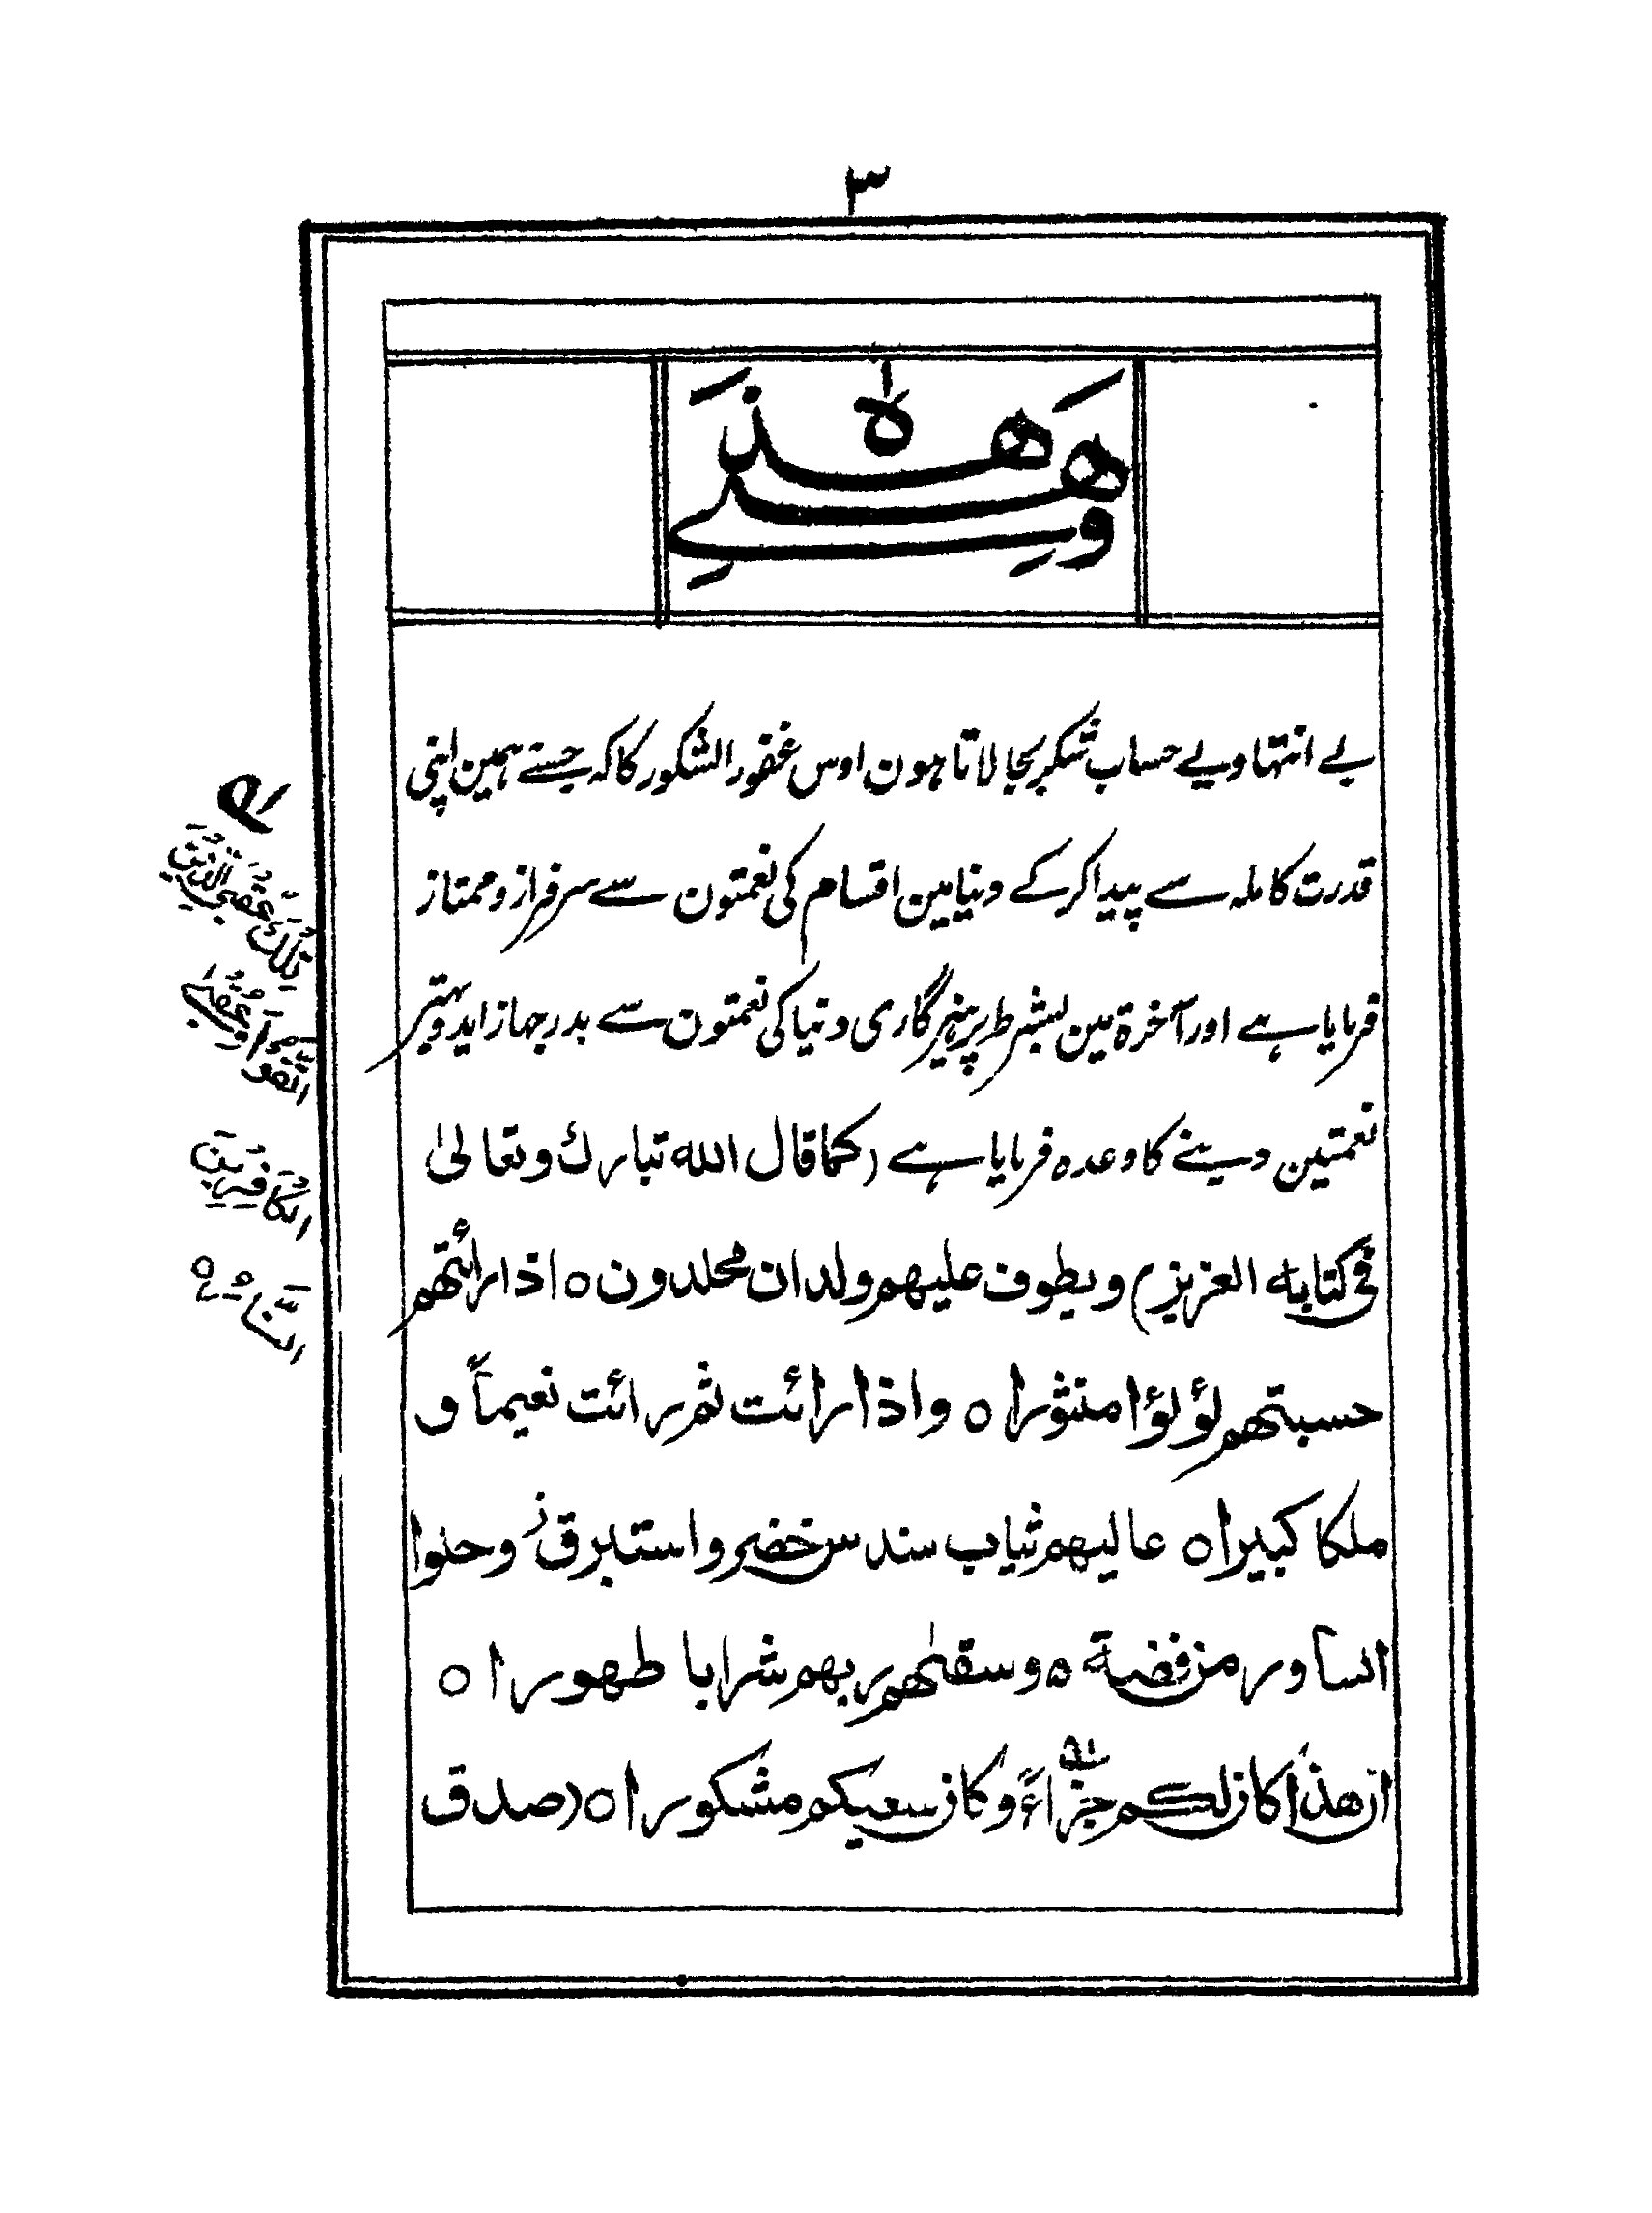 ٣
بے انتہا و بے حساب شکر بجا لاتا ہون اوس غفور الشکور کا کہ جسنے ہمین اپنی
قدرت کاملہ سے پیدا کرکے دنیا مین اقسام کی نعمتون سے سرفراز و ممتاز
فرمایا ہے اور آخرۃ مین بشرط پرہیزگاری دنیا کی نعمتون سے بدرجہا زاید و بہتر
نعمتین دینے کا وعدہ فرمایا ہے (کما قال الله تبارك وتعالىٰ
في كتابه العزيز) ويطوف عليهم ولدان مخلدون ٥ اذا رائتهم
حسبتهم لؤلؤا منثورا ٥ واذا رائت ثم رائت نعيماً و
ملكا كبيرا ٥ عاليهم ثياب سندس خضر واستبرق ز وحلوا
اساور من فضة ٥ وسقىٰهم ربهم شرابا طهورا ٥
ان هذا كان لكم جزاءً وكان سعيكم مشكورا ٥ (صدق
تِلْكَ عُقْبَى الَّذِينَ
اتَّقَوْا وَعُقْبَى
الْكَافِرِينَ
النَّارُ ٥